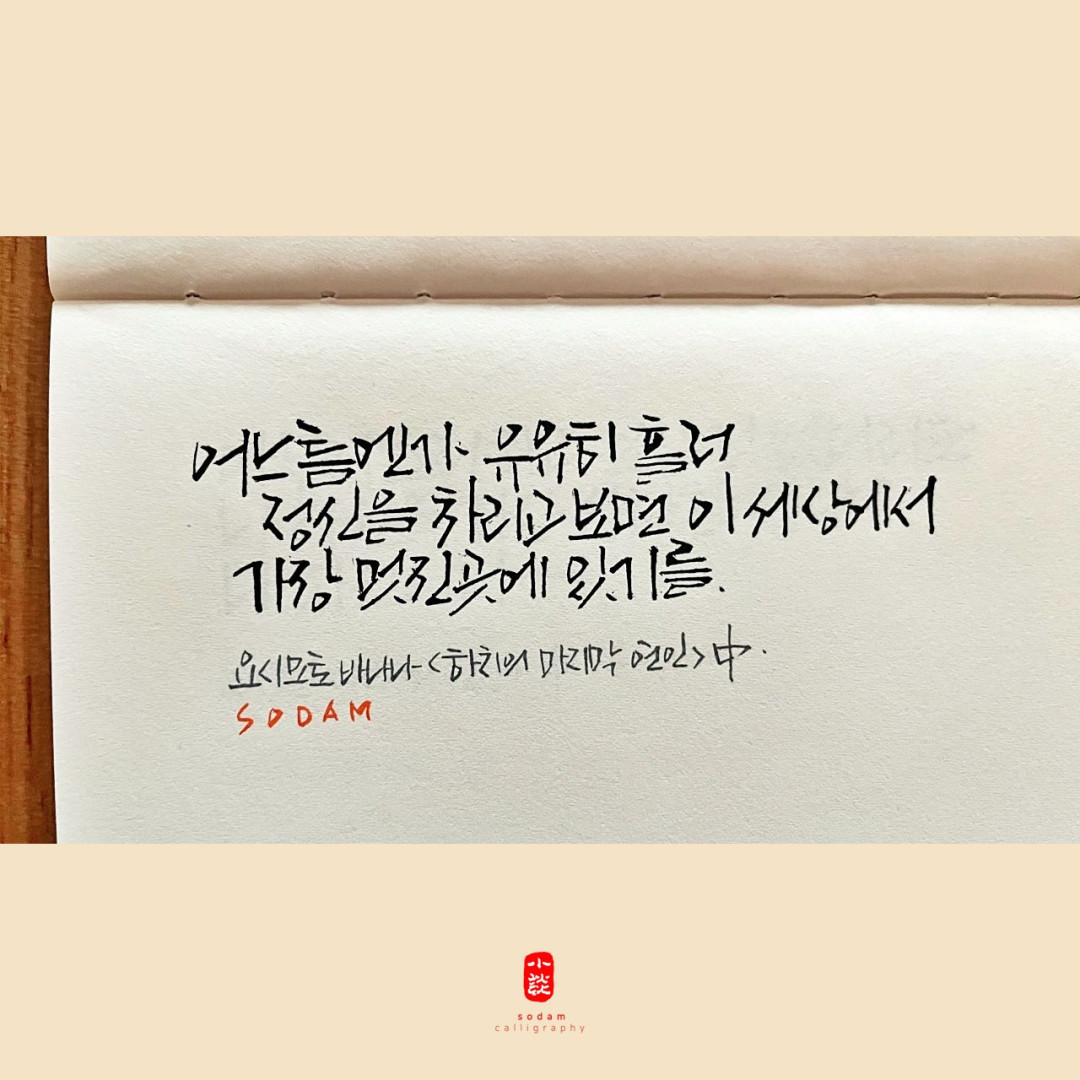 어느틈엔가 유유히 흘러
정신을 차리고 보면 이 세상에서
가장 멋진 곳에 있기를.
요시모토 바나나 <하치의 마지막 연인> 中.
SODAM
小談
sodam
calligraphy